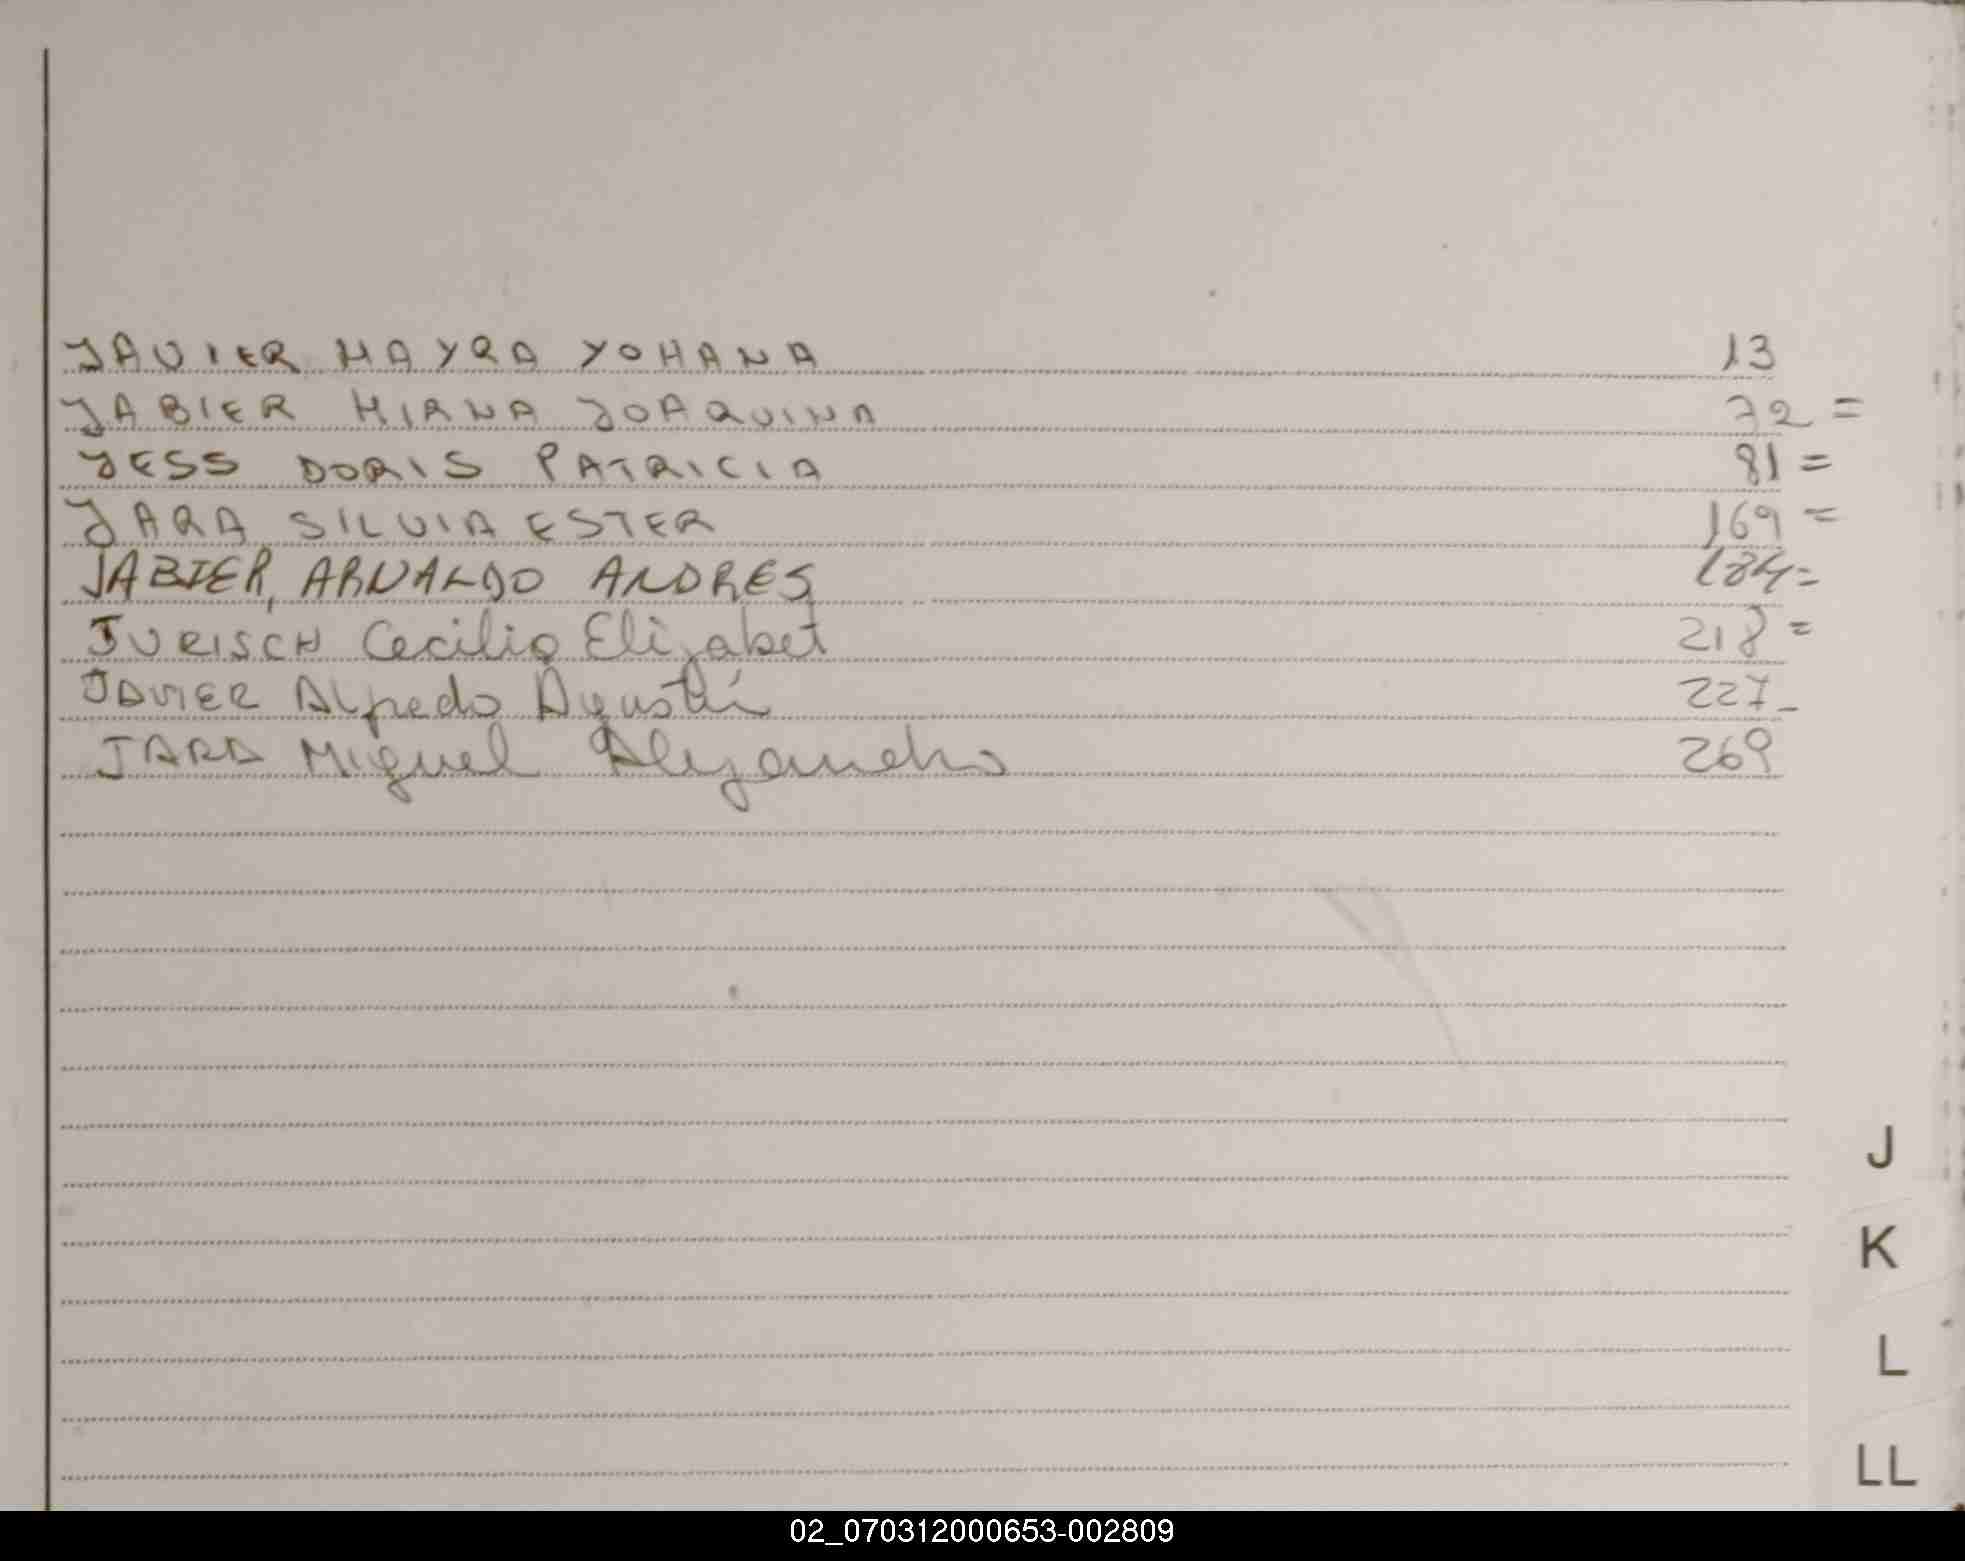 JAVIER MAYRA YOHANA 13
JABIER MIRNA JOAQUINA 72 =
JESS DORIS PATRICIA 81 =
JARA SILVIA ESTER 169 =
JABIER, ARNALDO ANDRES 184=
JURISCH Cecilia Elizabet 218 =
JAVIER Alfredo Agustín 227-
JARA Miguel Alejandro 269
J
K
L
LL
02_070312000653-002809